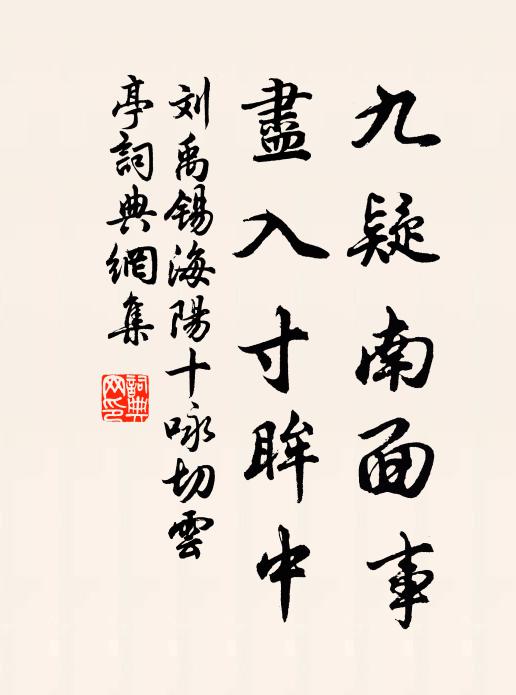 九疑南面事
盡入寸眸中
刘禹锡海陽十咏切雲
亭詞典網集
詞典
网印